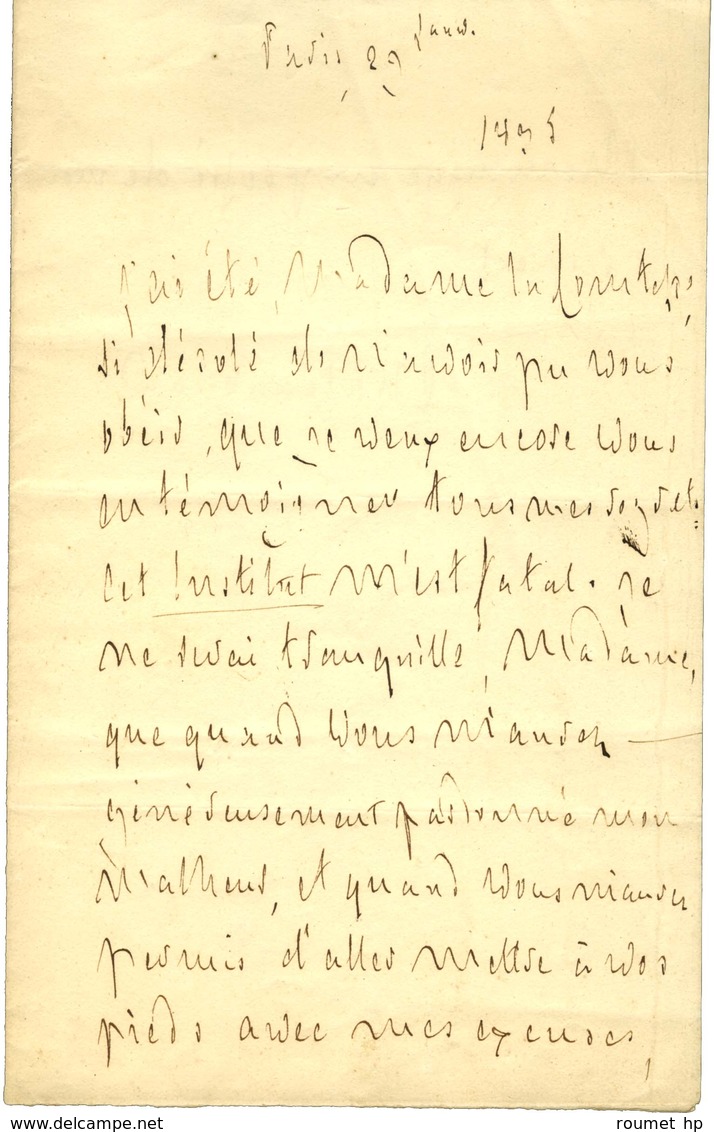 Paris, 29 Janv.
1835
J'ai été, Madame la Comtesse,
si désolé de n'avoir pu vous
obéir, que je veux encore vous
en témoigner tous mes regrets.
Cet Institut m'est fatal. je
ne serai tranquille, Madame,
que quand vous m'aurez
généreusement pardonné mon
malheur, et quand vous m'aurez
permis d'aller mettre à vos
pieds avec mes excuses,
www.delcampe.net
roumet hp